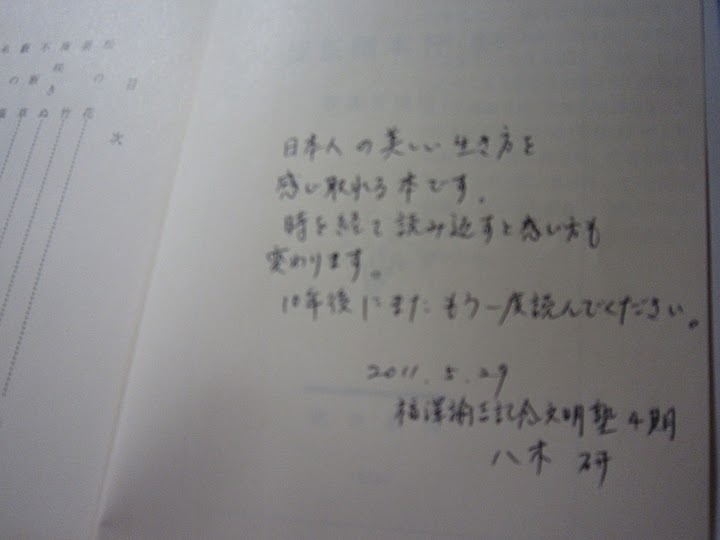 目次
松の花
箭竹
梅咲きぬ
不断草
藪の蔭
日本人の美しい生き方を
感じ取れる本です。
時を経て読み返すと感じ方も
変わります。
10年後にまたもう一度読んでください。
2011.5.29
福澤諭吉記念文明塾 4期
八木 研